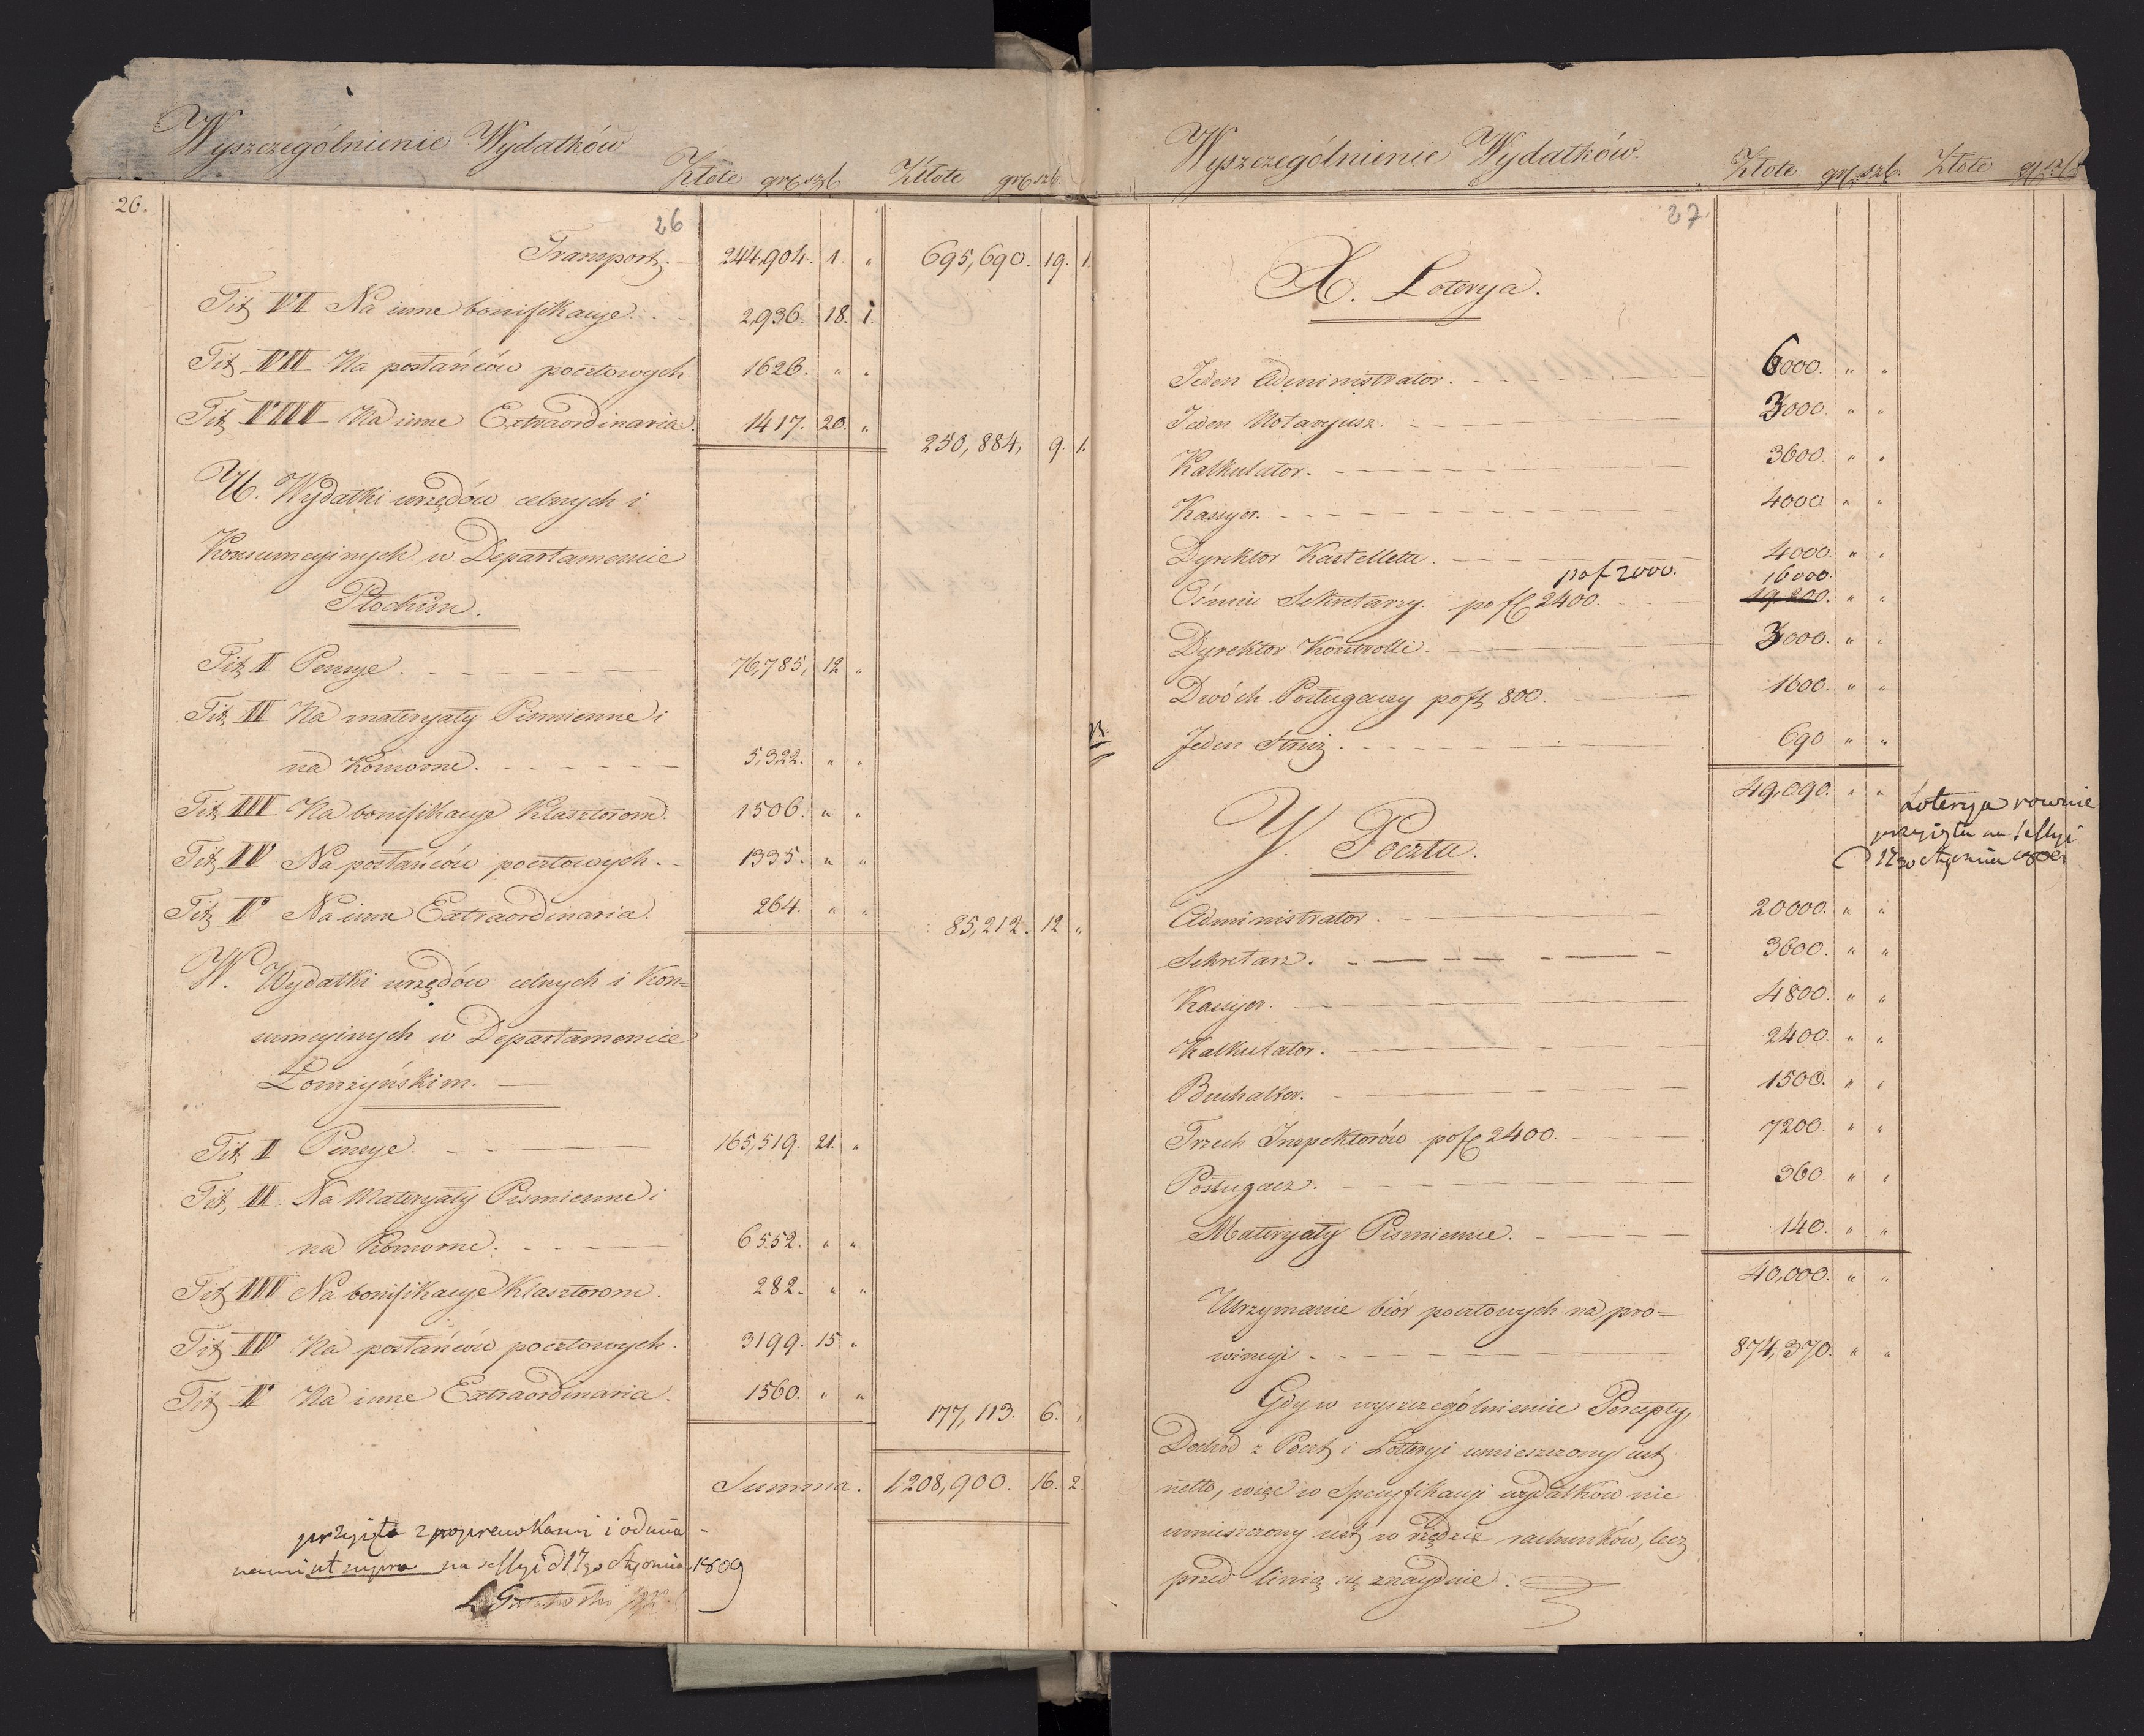 Wyszczególnienie Wydatków
Złote gr. szl. Złote gr. szl.
26.
26
Transport. 244,904. 1. " 695,690. 19. 1.
Tit. VI Na inne bonifikacye. 2,936. 18. 1.
Tit. VII Na posłańców pocztowych 1626. " "
Tit. VIII Na inne Extraordinaria. 1417. 20. "
250,884, 9. 1.
U. Wydatki urzędów celnych i
Konsumcyinych w Departamencie
Płockim.
Tit. I Pensye. 76,785, 12 "
Tit. II Na materyały Pismienne i
na Komorne. 5,322. " "
Tit. III Na bonifikacye Klasztorom. 1506. " "
Tit. IV Na posłańców pocztowych. 1335. " "
Tit. V Na inne Extraordinaria. 264. " "
85,212. 12 "
W. Wydatki urzędów celnych i Kon=
sumcyinych w Departamencie
Łomżyńskim.
Tit. I Pensye. 165,519. 21. "
Tit. II Na Materyały Pismienne i
na Komorne. 6552. " "
Tit. III Na bonifikacye Klasztorom. 282. " "
Tit. IV Na posłańców pocztowych. 3199. 15 "
Tit. V Na inne Extraordinaria. 1560. " "
177,113. 6. "
Summa. 1,208,900. 16. 2
przyięte z poprawkami i odmia
nami ut supra na sessyi d 17go Stycznia 1809
Wyszczególnienie Wydatków.
Złote gr. szl. Złote gr. szl.
27.
X. Loterya.
Jeden Administrator. 6000. " "
Jeden Notaryusz. 3000 " "
Kalkulator. 3600. " "
Kassyer. 4000 " "
Dyrektor Kastelletu. 4000. " "
po f 2000. 16000.
Ośmiu Sekretarzy po fl 2400. 19,200. " "
Dyrektor Kontrolli. 3000. " "
Dwóch Posługaczy po fl 800. 1600. " "
Jeden Struż. 690 " "
49,090. " "
Loterya rownie
przyięta na sessyi
d 17go stycznia 1809
Y. Poczta.
Administrator. 20000. " "
Sekretarz. 3600. " "
Kassyer. 4800. " "
Kalkulator. 2400. " "
Buchalter. 1500. " "
Trzech Inspektorów po fl 2400. 7200. " "
Posługacz. 360 " "
Materyały Pismienne. 140. " "
40,000. " "
Utrzymanie biór pocztowych na pro=
wincyi 874,370. " "
Gdy w wyszczególnieniu Percepty,
Dochód z Poczt i Lotteryi umieszczony iest
netto, więc w Specyfikacyi wydatków nie
umieszczony iest w rzędzie rachunków, lecz
przed linią się znayduie.